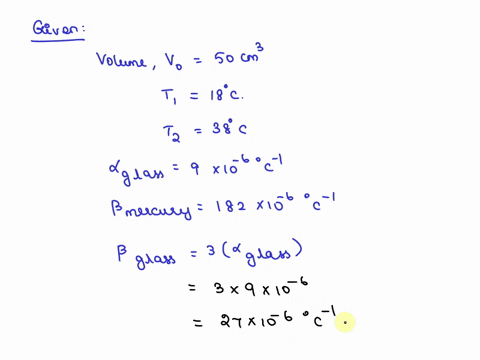 Given:
Volume, V₀ = 50 cm³
T₁ = 18°c.
T₂ = 38°c
α glass = 9 × 10⁻⁶ °c⁻¹
β mercury = 182 × 10⁻⁶ °c⁻¹
β glass = 3 (α glass)
= 3 × 9 × 10⁻⁶
= 27 × 10⁻⁶ °c⁻¹